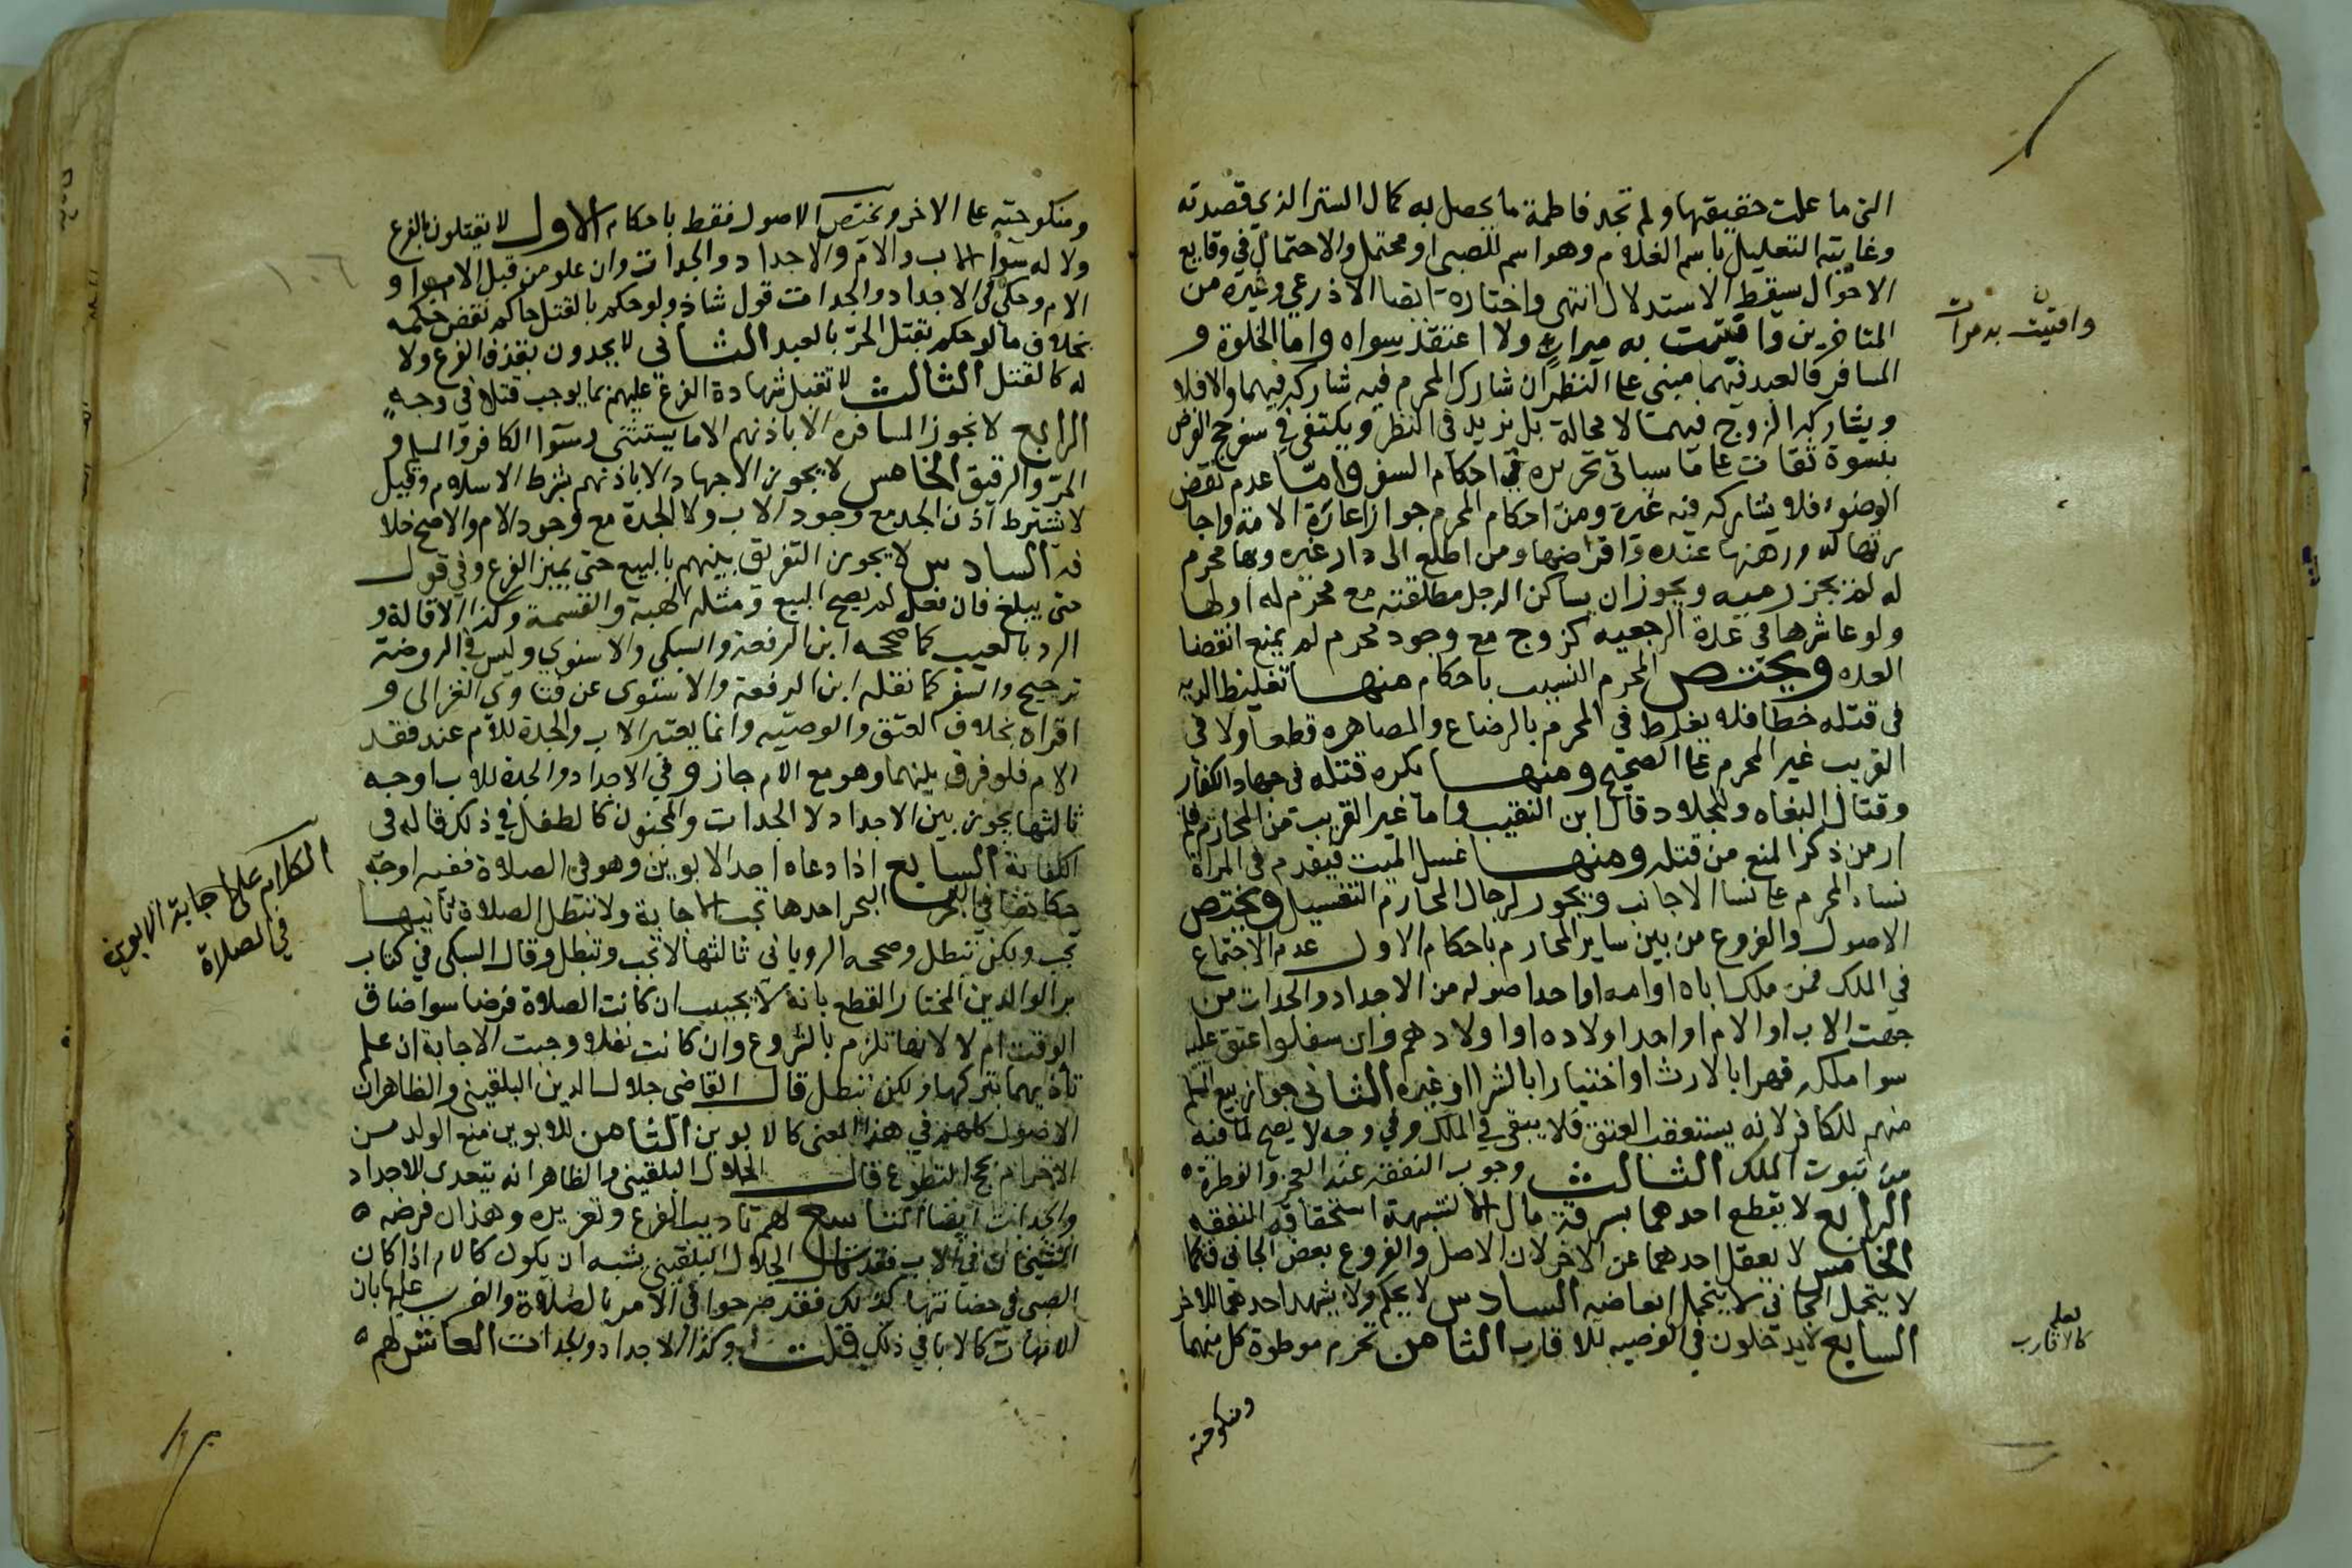 التى ما علمت حقيقتها ولم تجد فاطمة ما يحصل به كمال الستر الذي قصدته
وغايته التعليل باسم الغلام وهو اسم للصبى او محتمل والاحتمال في وقايع
الاحوال يسقط الاستدلال انتهى واختاره ايضا الاذرعي وغيره من
المتاخرين وافتيت به مرات ولا اعتقد سواه واما الخلوة و
المسافر فالعبد فيهما مبنى على النظر ان شارك المحرم فيه شاركه فيهما والا فلا
ويشاركه الزوج فيهما لا محالة بل يزيد في النظر ويكتفى في سفر حج الفرض
بنسوة ثقات على ما سياتى تحريره في احكام السفر واما عدم نقض
الوضوء فلا يشاركه فيه غيره ومن احكام المحرم جواز اعارة الامة واجا
رتها له ورهنها عنده واقراضها ومن اطلع الى دار غيره وبها محرم
له لم يجز رميه ويجوز ان يساكن الرجل مطلقته مع محرم له او لها
ولو عاشرها في عدة الرجعيه كزوج مع وجود محرم لم يمنع انقضا
العده ويختص المحرم النسيب باحكام منها تغليظ الديه
فى قتله خطا فلا يغلظ في المحرم بالرضاع والمصاهره قطعا ولا فى
القريب غير المحرم على الصحيح ومنها يكره قتله فى جهاد الكفار
وقتال البغاه والجلاد قال ابن النقيب واما غير القريب من المحارم فلم
ار من ذكر المنع من قتله ومنها غسل الميت فيقدم فى المراة
نساء المحرم على نسا الاجانب ويجوز لرجال المحارم التغسيل ويختص
الاصول والفروع من بين ساير المحارم باحكام الاول عدم الاجتماع
في الملك فمن ملك اباه او امه او احد اصوله من الاجداد والجدات من
جهت الاب او الام او احد اولاده او اولادهم وان سفلوا عتق عليه
سوا ملكه قهرا بالارث او اختيارا بالشرا او غيره الثانى جواز بيع المسلم
منهم للكافر لانه يستعقب العتق فلا يبقى في الملك وفي وجه لا يصح لما فيه
من ثبوت الملك الثالث وجوب النفقه عند العجز والفطرة
الرابع لا يقطع احدهما بسرقة مال الاخر لشبهة استحقاقه النفقه
الخامس لا يعقل احدهما عن الاخر لان الاصل والفروع بعض الجانى فكما
لا يتحمل الجانى لا يتحمل ابعاضه السادس لا يحكم ولا يشهد احدهما للاخر
السابع لا يدخلون فى الوصيه للاقارب الثامن تحرم موطوة كل منهما
ومنكوحته
وافتيت به مرات
كالاقارب
ومنكوحته على الاخر ويختص الاصول فقط باحكام الاول لا يقتلون بالفرع
ولا له سوا الاب والام والاجداد والجدات وان علو من قبل الاب او
الام وحكي في الاجداد والجدات قول شاذ ولو حكم بالقتل حاكم نقض حكمه
بخلاف ما لو حكم بقتل الحر بالعبد الثانى لا يحدون بقذف الفرع ولا
له كالقتل الثالث لا تقبل شهادة الفرع عليهم بما يوجب قتلا فى وجه
الرابع لا تجوز المسافره الا باذنهم الا ما يستثنى وسوا الكافر والمسلم و
الحر والرقيق الخامس لا يجوز الجهاد الا باذنهم بشرط الاسلام وقيل
لا يشترط اذن الجد مع وجود الاب ولا الجدة مع وجود الام والاصح خلا
فه السادس لا يجوز التفريق بينهم بالبيع حتى يميز الفرع وفي قول
حتى يبلغ فان فعل لم يصح البيع ومثله الهبة والقسمة وكذا الاقالة و
الرد بالعيب كما صححه ابن الرفعة والسبكي والاسنوي وليس في الروضة
ترجيح والسفر كما نقله ابن الرفعة والاسنوى عن فتاوي الغزالى و
اقراه بخلاف العتق والوصيه وانما يعتبر الاب والجدة للام عند فقد
الام فلو فرق بينهما وهو مع الام جاز وفي الاجداد والجدة للاب اوجه
ثالثها يجوز بين الاجداد لا الجدات والمجنون كالطفل في ذلك قاله فى
الكفاية السابع اذا دعاه احد الابوين وهو فى الصلاة ففيه اوجه
حكاها في البحر احدها تجب الاجابة ولا تبطل الصلاة ثانيها
تجب ولكن تبطل وصححه الرويانى ثالثها لا تجب وتبطل وقال السبكى في كتاب
بر الوالدين المختار القطع بانه لا يجيب ان كانت الصلاة فرضا سوا ضاق
الوقت ام لا لانها تلزم بالشروع وان كانت نفلا وجبت الاجابة ان علم
تاذيهما بتركها ولكن تبطل قال القاضى جلال الدين البلقينى والظاهر ان
الاصول كلهم في هذا المعنى كالابوين الثامن للابوين منع الولد من
الاحرام بحج التطوع قال الجلال البلقينى والظاهر انه يتعدى للاجداد
والجدات ايضا التاسع لهم تاديب الفرع وتعزيره وهذا ان فرضه
الشيخان فى الاب فقد قال الجلال البلقينى يشبه ان يكون كالام اذا كان
الصبى في حضانتها كذلك فقد صرحوا في الامر بالصلاة والضرب عليها بان
الامهات كالابا في ذلك قلت وكذا الاجداد والجدات العاشر لهم
الكلام على اجابة الابوين
في الصلاة
١٠٦